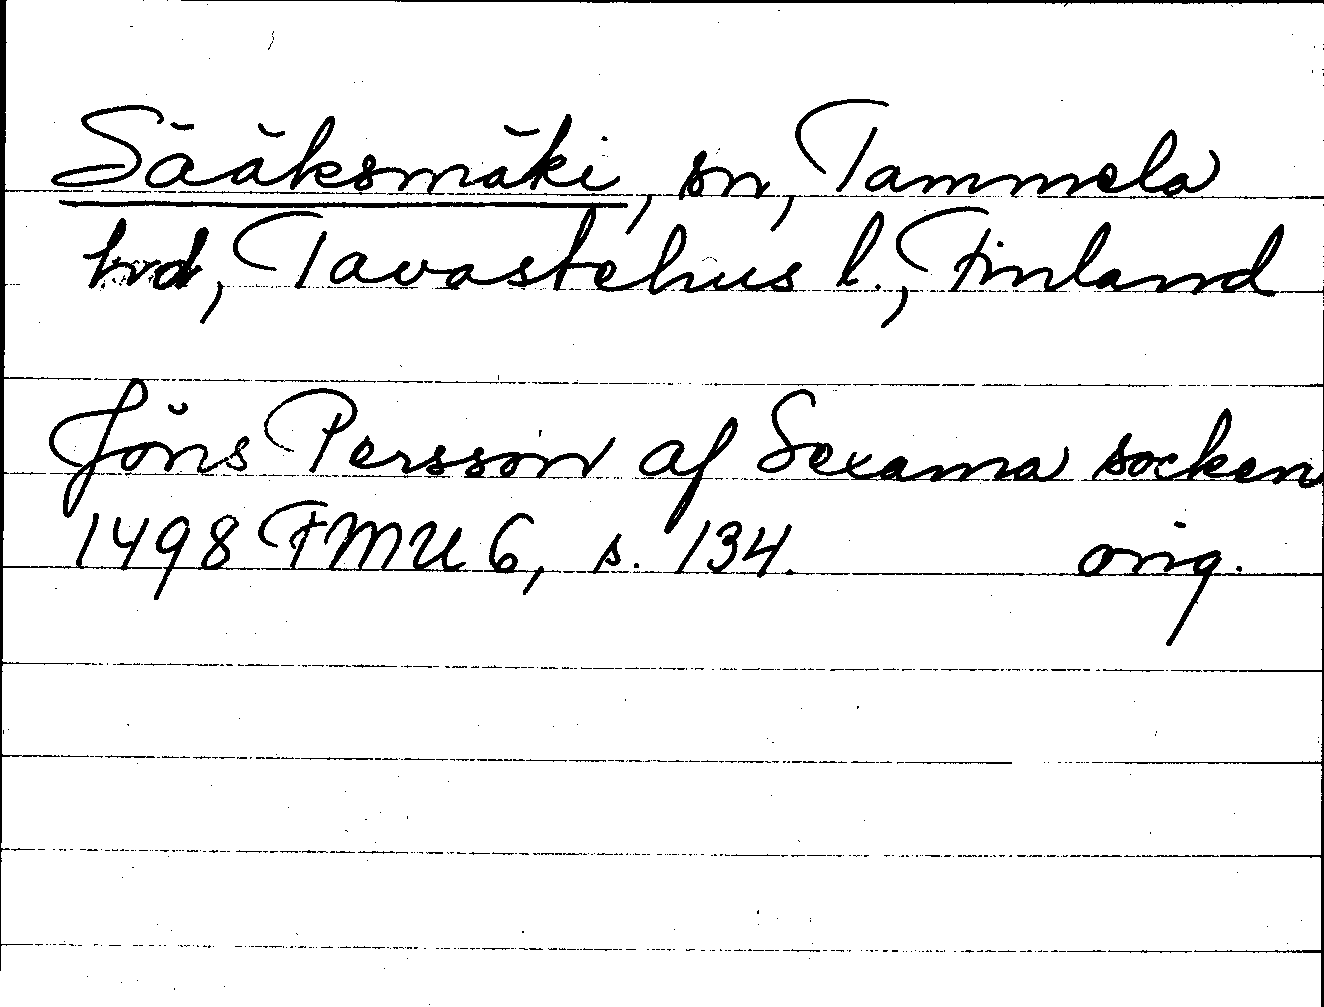 Sääksmäki, sn, Tammela
hrd, Tavastehus l., Finland
Jöns Persson af Sexama socken
1498 FMU 6, s. 134. orig.